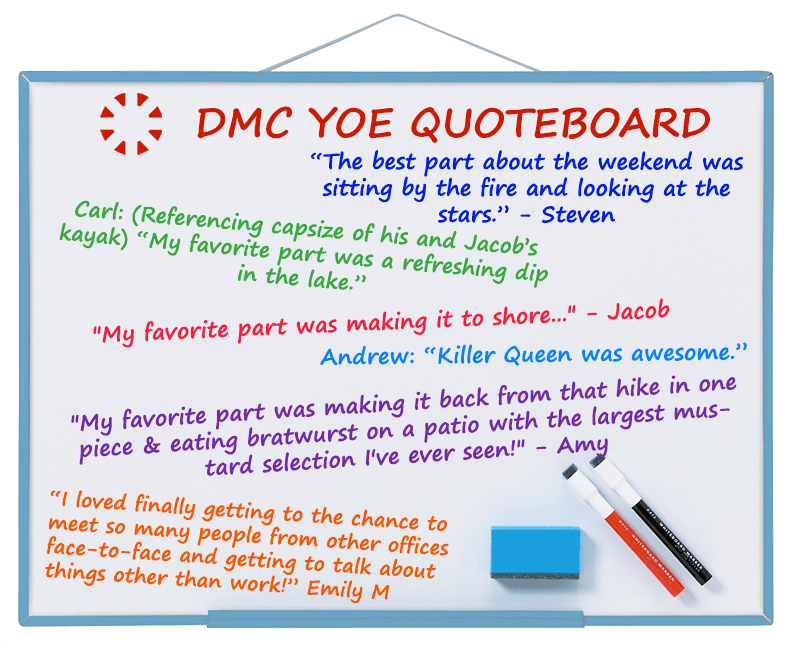 DMC YOE QUOTEBOARD
“The best part about the weekend was
sitting by the fire and looking at the
stars.” - Steven
Carl: (Referencing capsize of his and Jacob’s
kayak) “My favorite part was a refreshing dip
in the lake.”
"My favorite part was making it to shore..." - Jacob
Andrew: “Killer Queen was awesome.”
"My favorite part was making it back from that hike in one
piece & eating bratwurst on a patio with the largest mus-
tard selection I've ever seen!" - Amy
“I loved finally getting to the chance to
meet so many people from other offices
face-to-face and getting to talk about
things other than work!” Emily M
WHITEBOARD MARKER
WHITEBOARD MARKER